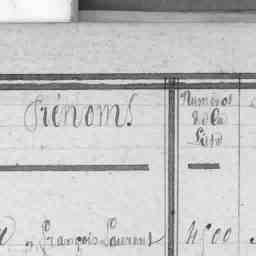 Prénoms
Numéros
de la
Liste
François Laurent